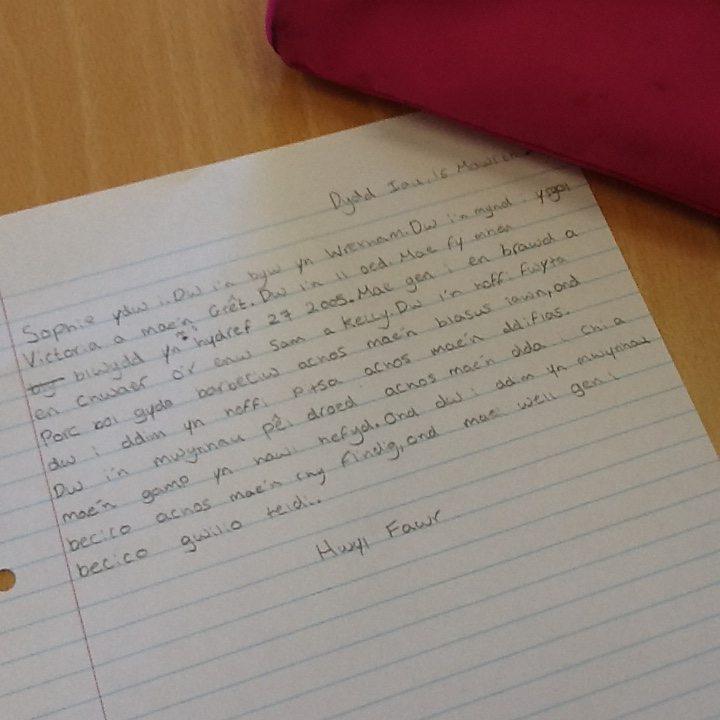 Dydd Iau, 16 Mawrth
Sophie ydw i. Dw i'n byw yn Wrexham. Dw i'n mynd i ysgol
Victoria a mae'n Grêt. Dw i'n 11 oed. Mae fy mhen
blwydd yn hydref 27 2005. Mae gen i en brawd a
en chwaer o'r enw Sam a Kelly. Dw i'n hoffi fwyta
Porc bol gyda barbeciw achos mae'n blasus iawn, ond
dw i ddim yn hoffi pitsa achos mae'n ddiflas.
Dw i'n mwynhau pêl droed achos mae'n dda i chi a
mae'n gamp yn hawl hefyd. Ond dw i ddim yn mwynhau
becico achos mae'n chy findig, ond mae well gen i
becico gwilio teldi..
Hwyl Fawr